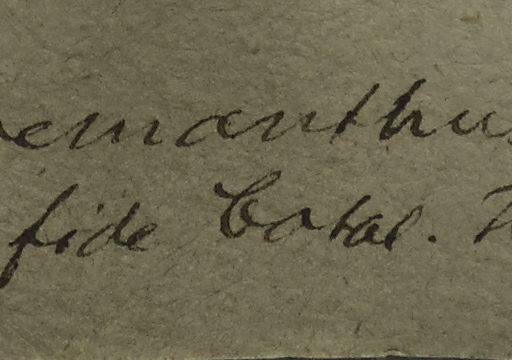 emanthus
fide Cotal.